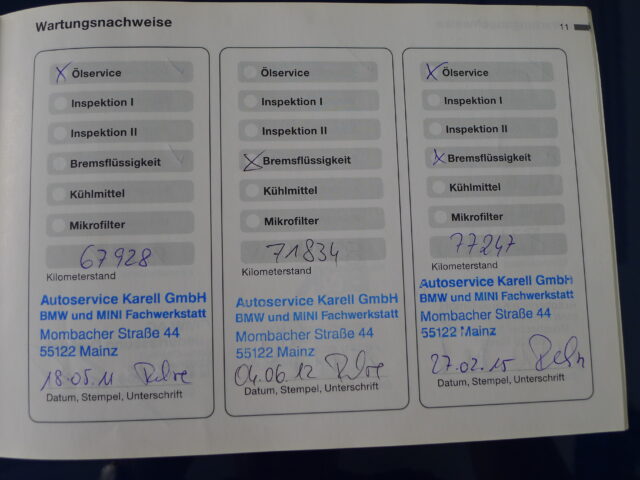 Wartungsnachweise
11
X Ölservice
Inspektion I
Inspektion II
Bremsflüssigkeit
Kühlmittel
Mikrofilter
67928
Kilometerstand
Autoservice Karell GmbH
BMW und MINI Fachwerkstatt
Mombacher Straße 44
55122 Mainz
18.05.11
Datum, Stempel, Unterschrift
Ölservice
Inspektion I
Inspektion II
X Bremsflüssigkeit
Kühlmittel
Mikrofilter
71834
Kilometerstand
Autoservice Karell GmbH
BMW und MINI Fachwerkstatt
Mombacher Straße 44
55122 Mainz
04.06.12
Datum, Stempel, Unterschrift
X Ölservice
Inspektion I
Inspektion II
X Bremsflüssigkeit
Kühlmittel
Mikrofilter
77247
Kilometerstand
Autoservice Karell GmbH
BMW und MINI Fachwerkstatt
Mombacher Straße 44
55122 Mainz
27.02.15
Datum, Stempel, Unterschrift